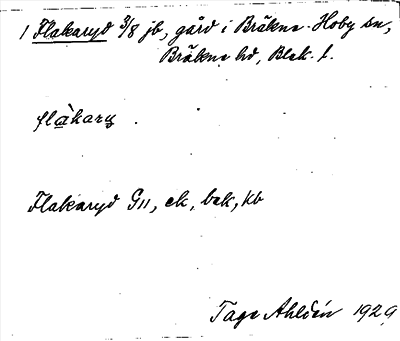 1 Flakaryd 3/8 jb, gård i Bräkne-Hoby sn,
Bräkne hd, Blek. l.
flàkary
Flakaryd G11, ek, bek, kb
Tage Ahldén 1929